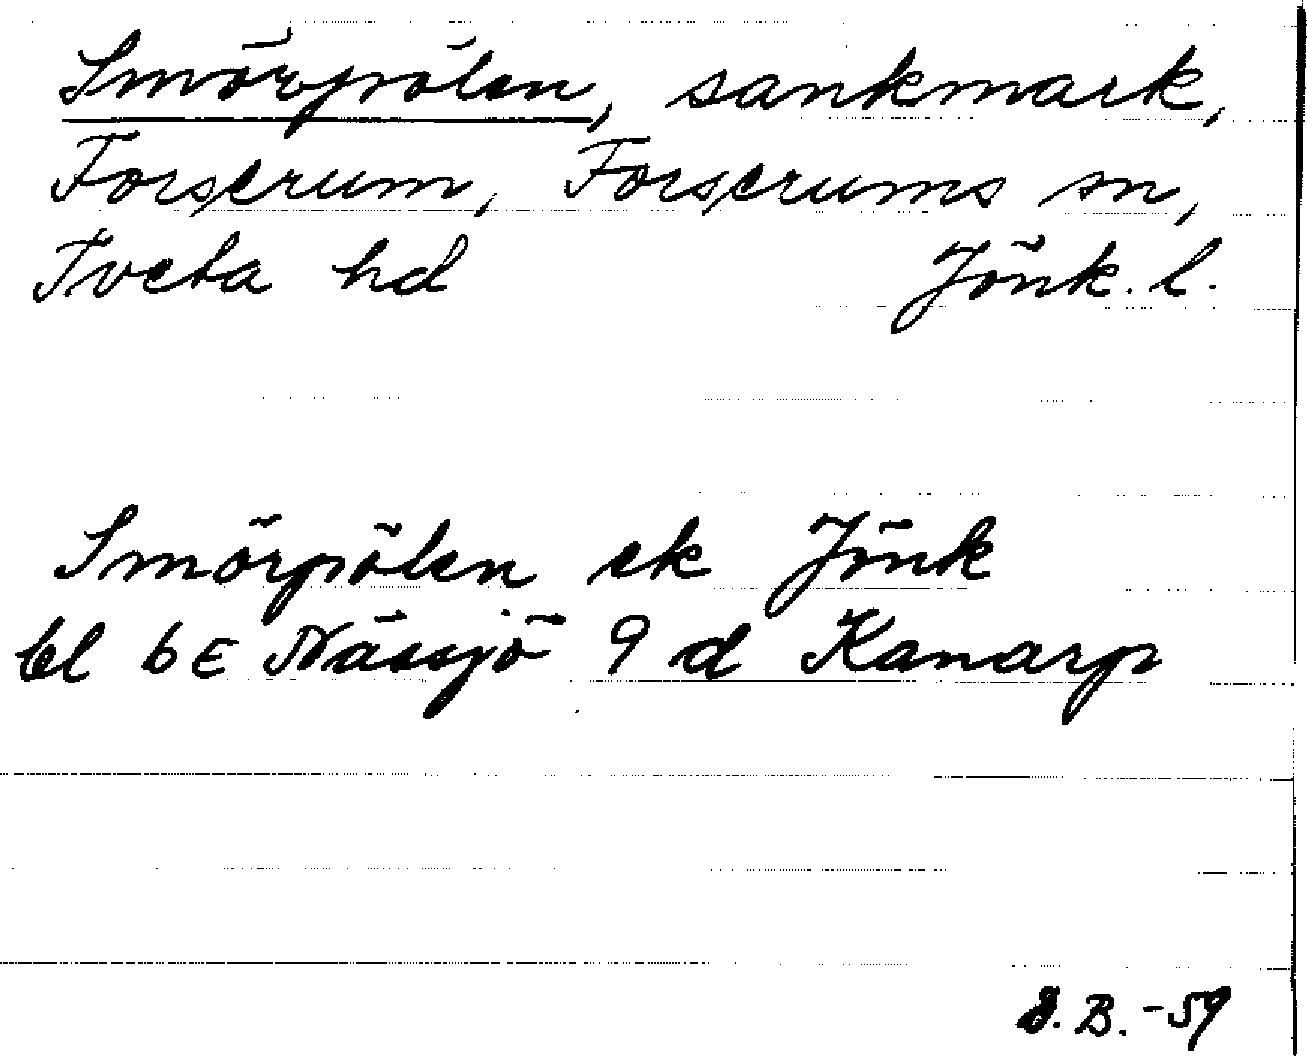 Smörpölen, sankmark,
Forserum, Forserums sn,
Tveta hd Jönk. l.
Smörpölen ek Jönk
bl 6E Nässjö 9 d Kanarp
B. -59